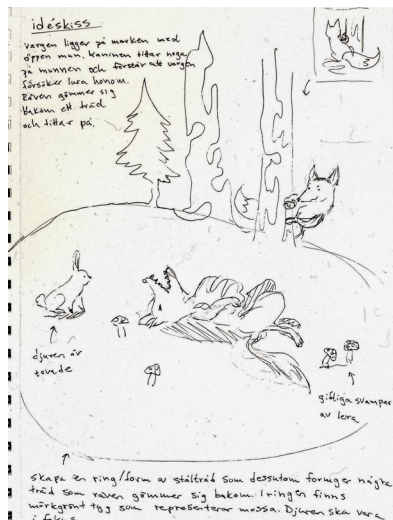 idéskiss
vargen ligger på marken med
öppen mun. kaninen tittar noga
på munnen och förstår att vargen
försöker lura honom.
Räven gömmer sig
bakom ett träd
och tittar på.
djuren är
tovade
giftliga svampar
av lera
skapa en ring/form av ståltråd som dessutom formger några
träd som räven gömmer sig bakom. I ringen finns
mörkgrönt tyg som representerar mossa. Djuren ska vara
i fokus